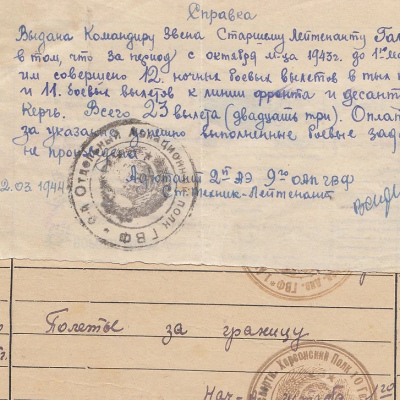 Справка
Выдана Командиру Звена Старшему Лейтенанту
в том, что за период с октября м-ца 1943г. до
им совершено 12 ночных боевых вылетов в тыл
и 11 боевых вылетов к линии фронта и десант
Керч. Всего 23 вылета (двадцать три). Оплат
за указанные успешно выполненные боевые зад
не произведена
2.03 1944
Адъютант 2й АЭ 9го ОАП ГВФ
Ст. техник-Лейтенант
Отдельный Авиационный полк ГВФ
Полеты за границу
Херсонский Полк
Нач-